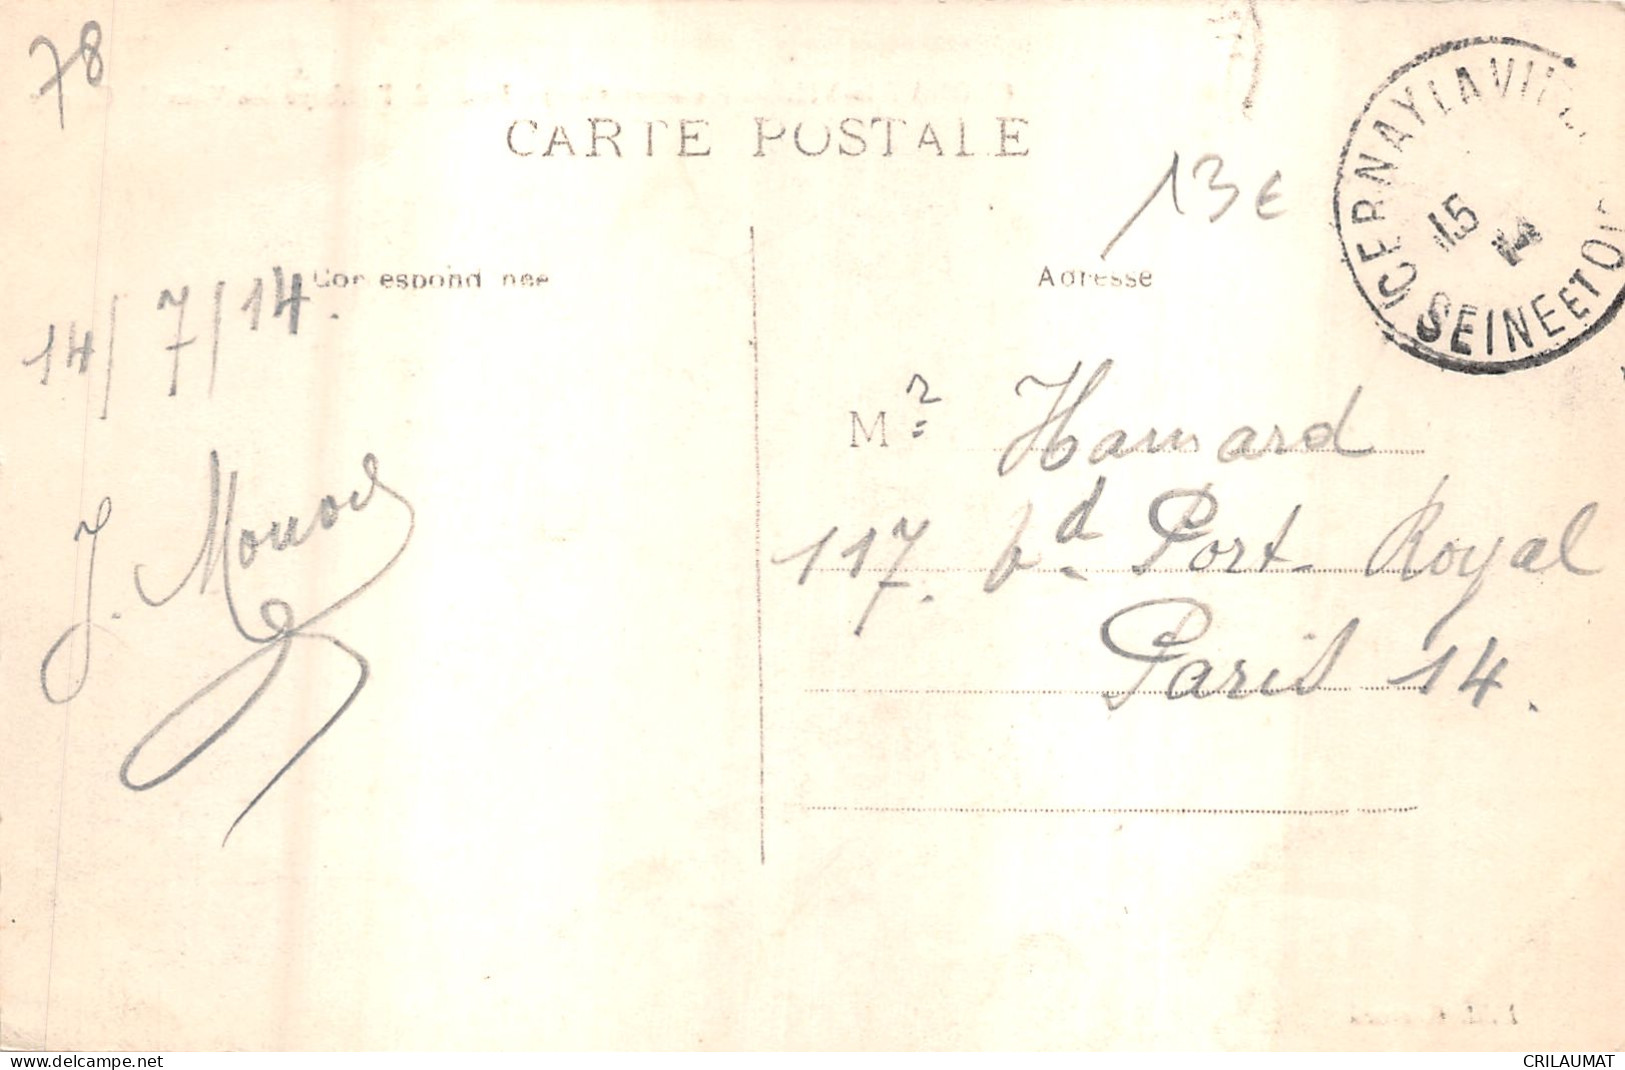 78
CARTE POSTALE
13 €
CERNAY LA VILLE
15
14
SEINE ET OISE
Correspondance
Adresse
14/7/14.
Mr Hamard
J. Monod
117. bd Port-Royal
Paris 14.
delcampe.net
CRILAUMAT